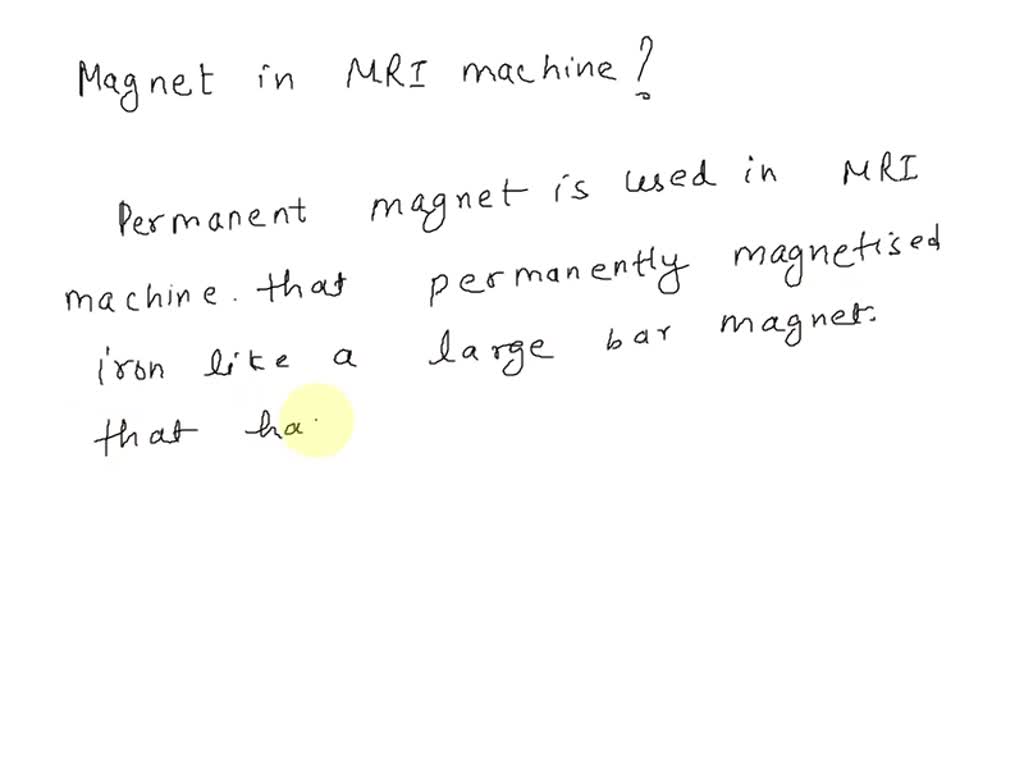 Magnet in MRI machine?
Permanent magnet is used in MRI
machine. that permanently magnetised
iron like a large bar magnet.
that ha